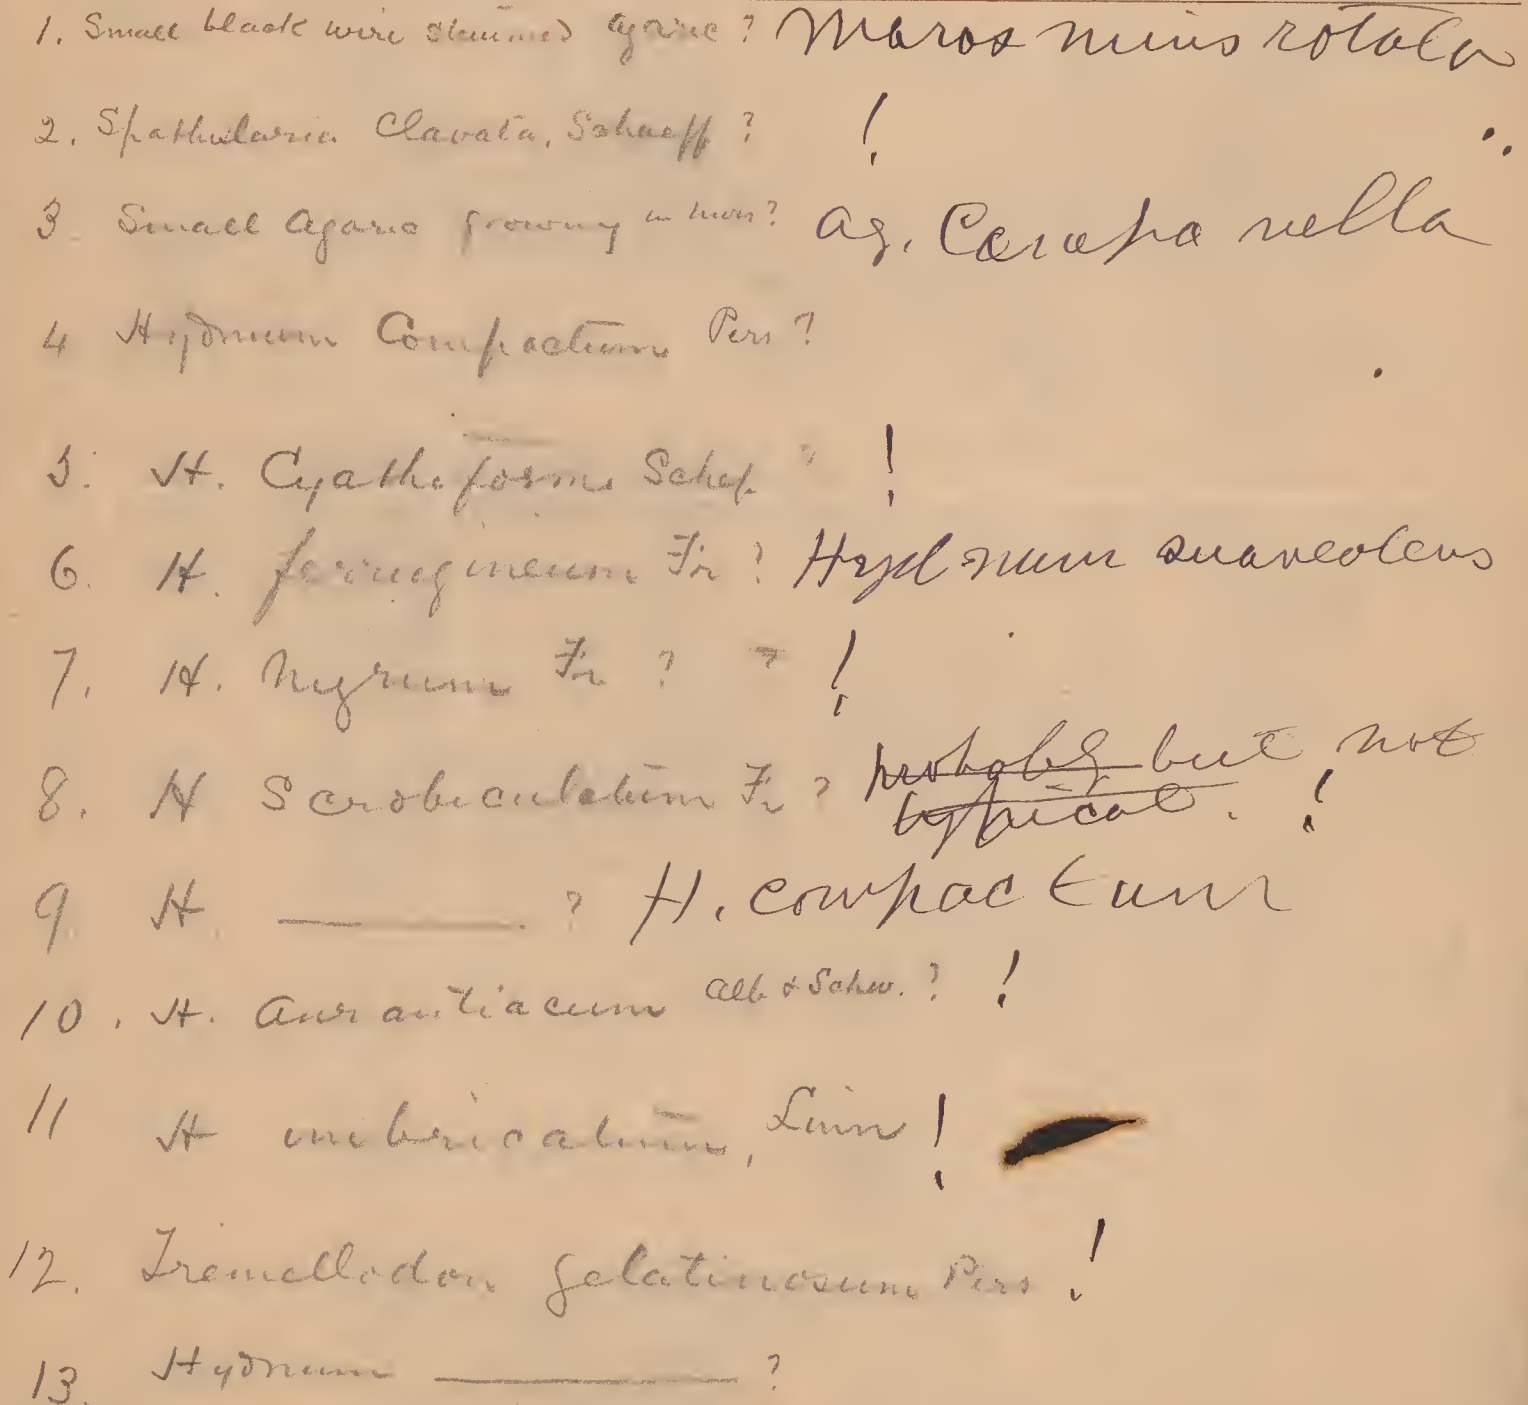 1. Small black wire stemmed agaric? Marosmius rotula
2. Spathularia Clavata, Schaeff? !
3. Small Agaric growing in moss? Ag. Campanella
4 Hydnum Compactum Pers?
5. H. Cyatheforme Schef !
6. H. ferrugineum Fr? Hydnum suaveolens
7. H. nigrum Fr ? !
8. H Scrobiculatum Fr? probably but not
typical. !
9. H. ——— ? H. compactum
10. H. Aurantiacum Alb & Schw.? !
11 H imbricatum, Linn !
12. Tremellodon gelatinosum Pers !
13. Hydnum ——— ?